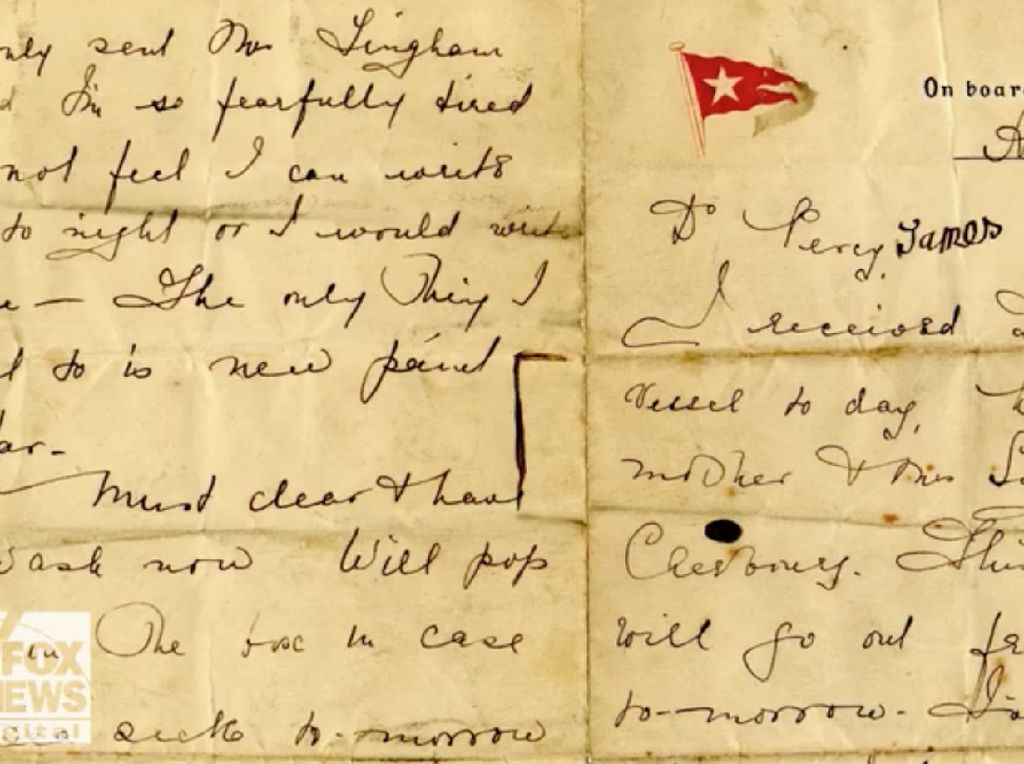 only sent Mrs Lingham
d I'm so fearfully tired
not feel I can write
to night or I would write
e — The only Thing I
to is new paint
ar.
Must clear & have
wash now Will pop
in The box in case
sick to-morrow
FOX
NEWS
digital
On board
Dr Percy James
I received
Vessel to day,
mother & Mrs
Cherbourg. This
will go out
to-morrow.